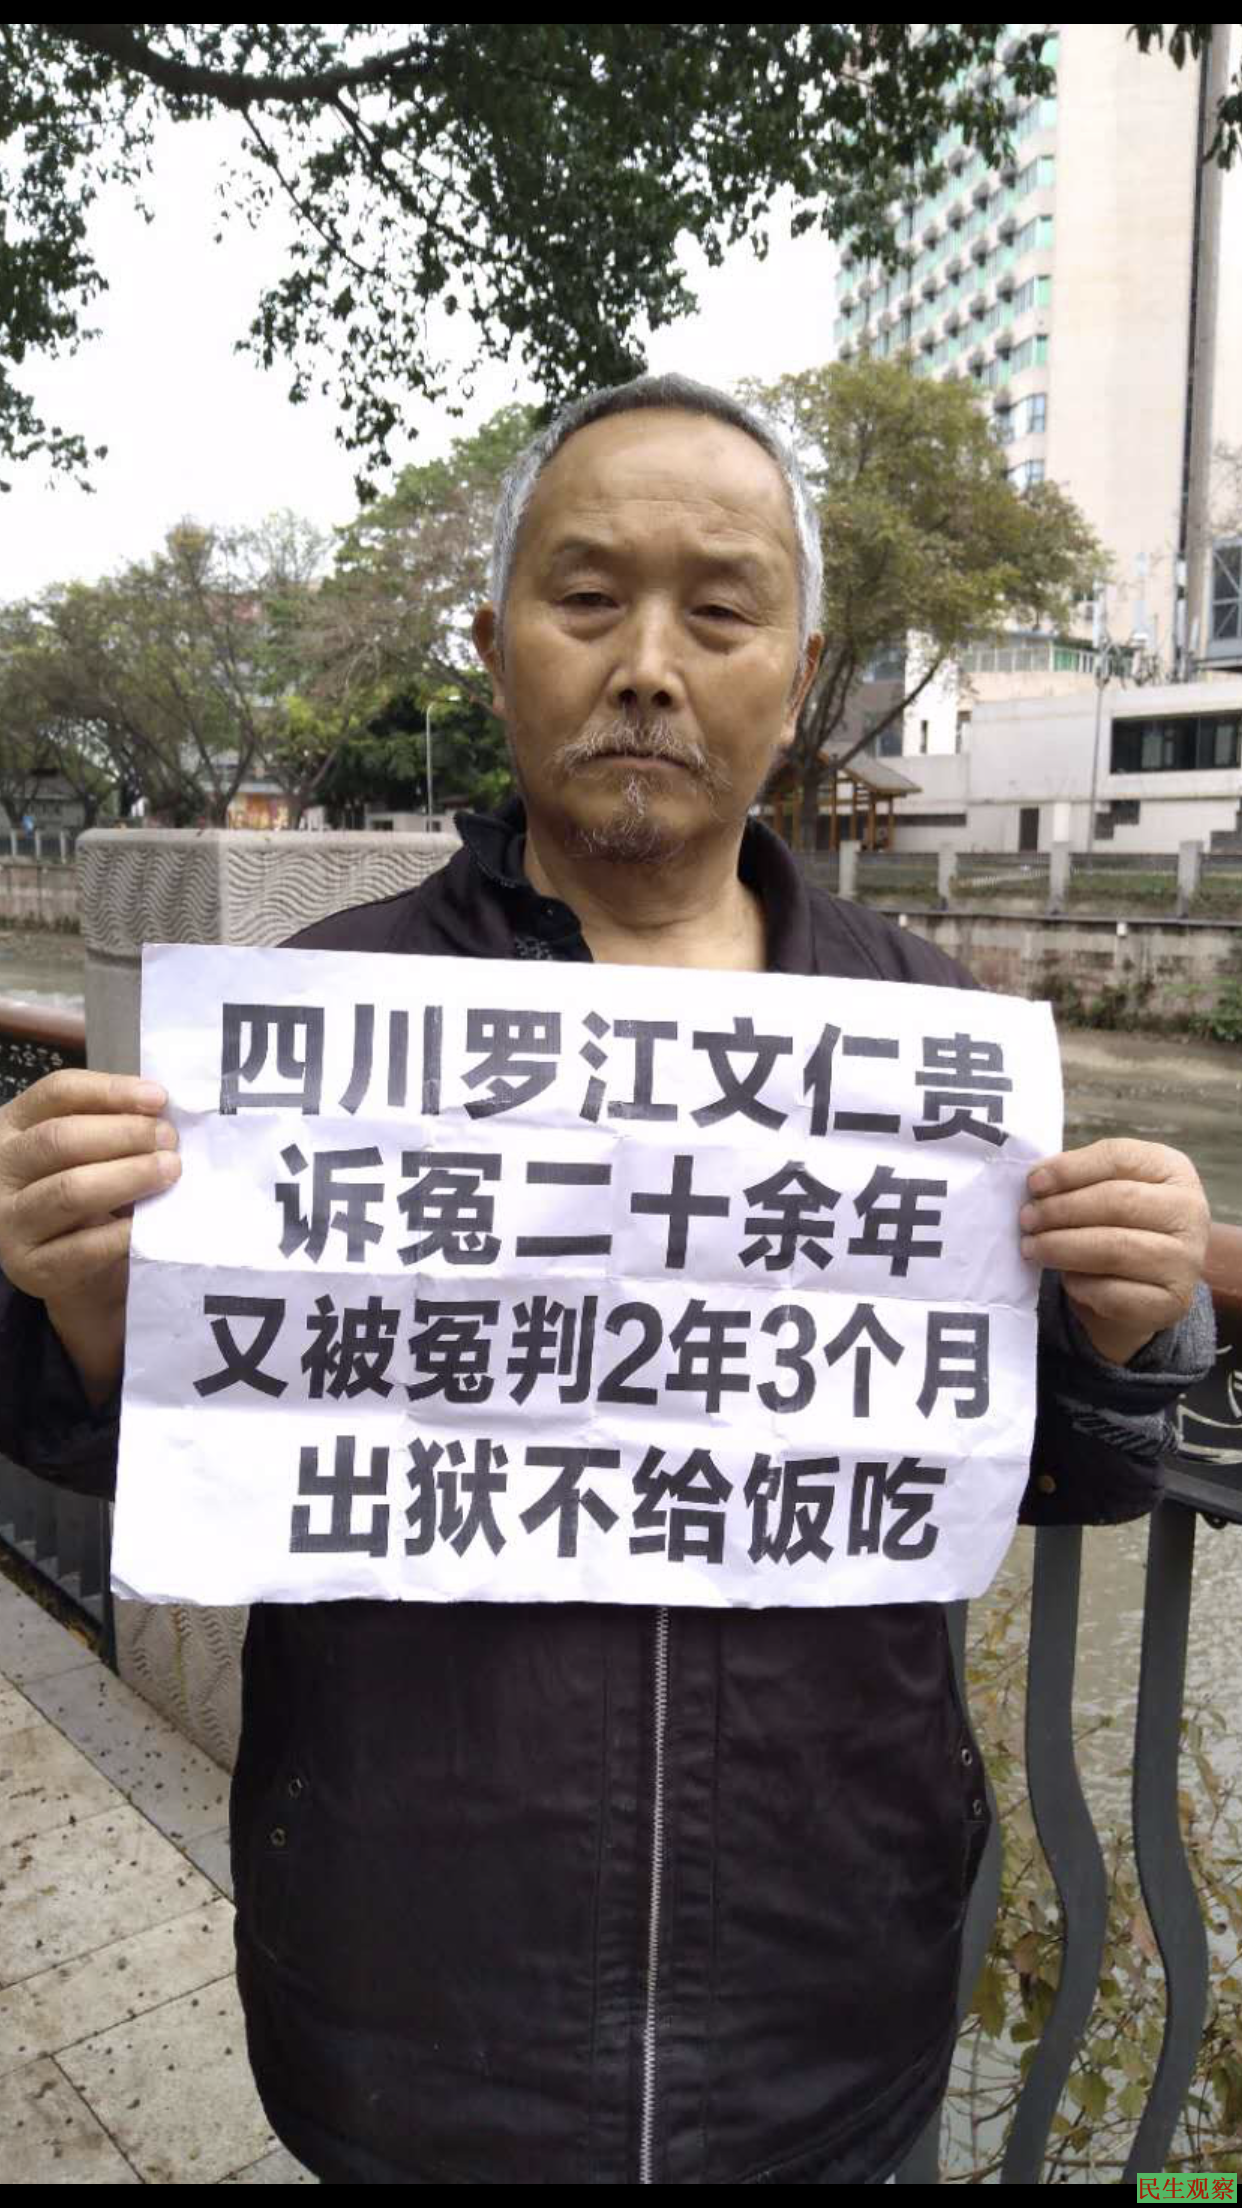 四川罗江文仁贵
诉冤二十余年
又被冤判2年3个月
出狱不给饭吃
民生观察